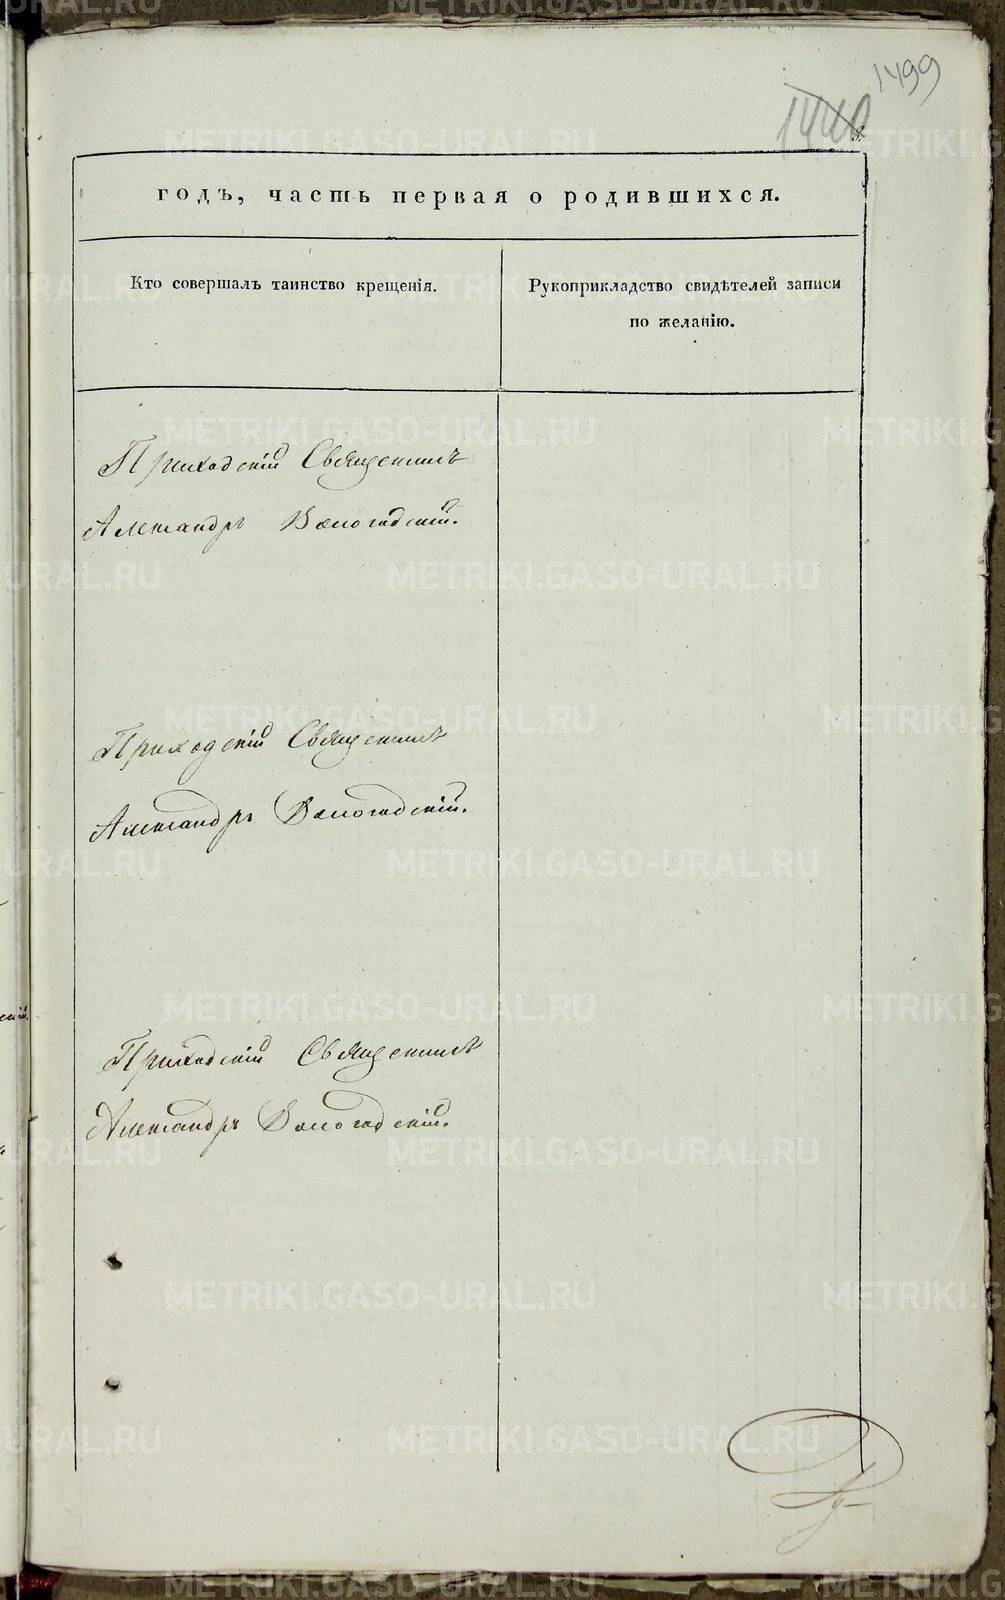 1499
1440
годъ, часть первая о родившихся.
Кто совершалъ таинство крещенія.
Рукоприкладство свидѣтелей записи
по желанію.
Приходскій Священникъ
Александръ Вологодскій.
Приходскій Священникъ
Александръ Вологодскій.
Приходскій Священникъ
Александръ Вологодскій.
METRIKI.GASO-URAL.RU